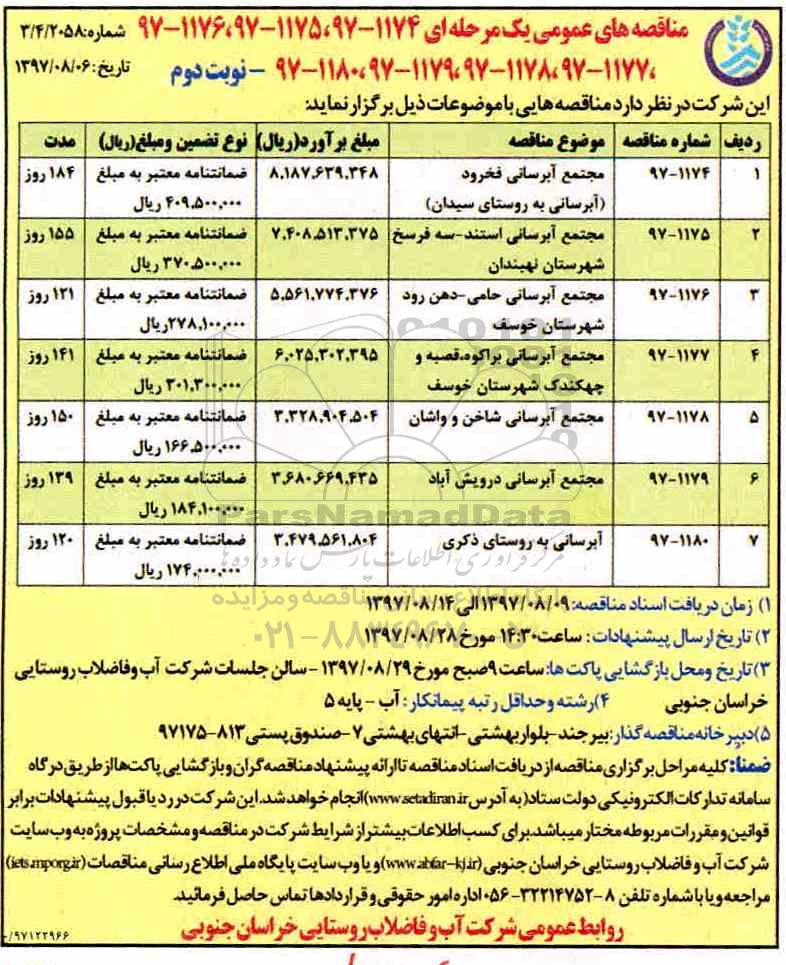 مناقصه های عمومی یک مرحله ای ۱۱۷۴-۹۷، ۱۱۷۵-۹۷، ۱۱۷۶-۹۷ شماره: ۳/۴/۲۰۵۸
، ۱۱۷۷-۹۷، ۱۱۷۸-۹۷، ۱۱۷۹-۹۷، ۱۱۸۰-۹۷ - نوبت دوم تاریخ: ۱۳۹۷/۰۸/۰۶
این شرکت در نظر دارد مناقصه هایی با موضوعات ذیل برگزار نماید:
ردیف شماره مناقصه موضوع مناقصه مبلغ برآورد(ریال) نوع تضمین ومبلغ(ریال) مدت
۱ ۹۷-۱۱۷۴ مجتمع آبرسانی فخرود ۸,۱۸۷,۶۳۹,۳۴۸ ضمانتنامه معتبر به مبلغ ۱۸۴ روز
(آبرسانی به روستای سیدان) ۴۰۹,۵۰۰,۰۰۰ ریال
۲ ۹۷-۱۱۷۵ مجتمع آبرسانی استند-سه فرسخ ۷,۴۰۸,۵۱۳,۳۷۵ ضمانتنامه معتبر به مبلغ ۱۵۵ روز
شهرستان نهبندان ۳۷۰,۵۰۰,۰۰۰ ریال
۳ ۹۷-۱۱۷۶ مجتمع آبرسانی حامی-دهن رود ۵,۵۶۱,۷۷۴,۳۷۶ ضمانتنامه معتبر به مبلغ ۱۲۱ روز
شهرستان خوسف ۲۷۸,۱۰۰,۰۰۰ریال
۴ ۹۷-۱۱۷۷ مجتمع آبرسانی براکوه،قصبه و ۶,۰۲۵,۳۰۲,۳۹۵ ضمانتنامه معتبر به مبلغ ۱۴۱ روز
چهکندک شهرستان خوسف ۳۰۱,۳۰۰,۰۰۰ ریال
۵ ۹۷-۱۱۷۸ مجتمع آبرسانی شاخن و واشان ۳,۳۲۸,۹۰۴,۵۰۴ ضمانتنامه معتبر به مبلغ ۱۵۰ روز
۱۶۶,۵۰۰,۰۰۰ ریال
۶ ۹۷-۱۱۷۹ مجتمع آبرسانی درویش آباد ۳,۶۸۰,۶۶۹,۴۳۵ ضمانتنامه معتبر به مبلغ ۱۳۹ روز
۱۸۴,۱۰۰,۰۰۰ ریال
ParsNamadData
۷ ۹۷-۱۱۸۰ آبرسانی به روستای ذکری ۳,۴۷۹,۵۶۱,۸۰۴ ضمانتنامه معتبر به مبلغ ۱۲۰ روز
مرکز فرآوری اطلاعات پارس نماد داده ها
۱۷۴,۰۰۰,۰۰۰ ریال
۱) زمان دریافت اسناد مناقصه: ۱۳۹۷/۰۸/۰۹ الی ۱۳۹۷/۰۸/۱۴
۲) تاریخ ارسال پیشنهادات: ساعت ۱۴:۳۰ مورخ ۱۳۹۷/۰۸/۲۸
۰۲۱-۸۸۳۴۹۶۷۰-۵
۳)تاریخ ومحل بازگشایی پاکت ها: ساعت ۹صبح مورخ ۱۳۹۷/۰۸/۲۹ - سالن جلسات شرکت آب وفاضلاب روستایی
خراسان جنوبی ۴)رشته وحداقل رتبه پیمانکار: آب - پایه ۵
۵)دبیرخانه مناقصه گذار: بیرجند-بلواربهشتی-انتهای بهشتی۷-صندوق پستی ۸۱۳-۹۷۱۷۵
ضمنا: کلیه مراحل برگزاری مناقصه از دریافت اسناد مناقصه تا ارائه پیشنهاد مناقصه گران و بازگشایی پاکت ها از طریق درگاه
سامانه تدارکات الکترونیکی دولت ستاد(به آدرس www.setadiran.ir)انجام خواهد شد. این شرکت در رد یا قبول پیشنهادات برابر
قوانین و مقررات مربوطه مختار میباشد.برای کسب اطلاعات بیشتر از شرایط شرکت در مناقصه و مشخصات پروژه به وب سایت
شرکت آب و فاضلاب روستایی خراسان جنوبی (www.abfar-kj.ir)و یا وب سایت پایگاه ملی اطلاع رسانی مناقصات (iets.mporg.ir)
مراجعه ویا با شماره تلفن ۸-۳۲۲۱۴۷۵۲-۰۵۶ اداره امور حقوقی و قراردادها تماس حاصل فرمائید.
روابط عمومی شرکت آب و فاضلاب روستایی خراسان جنوبی
۹۷۱۲۲۹۶۶/-